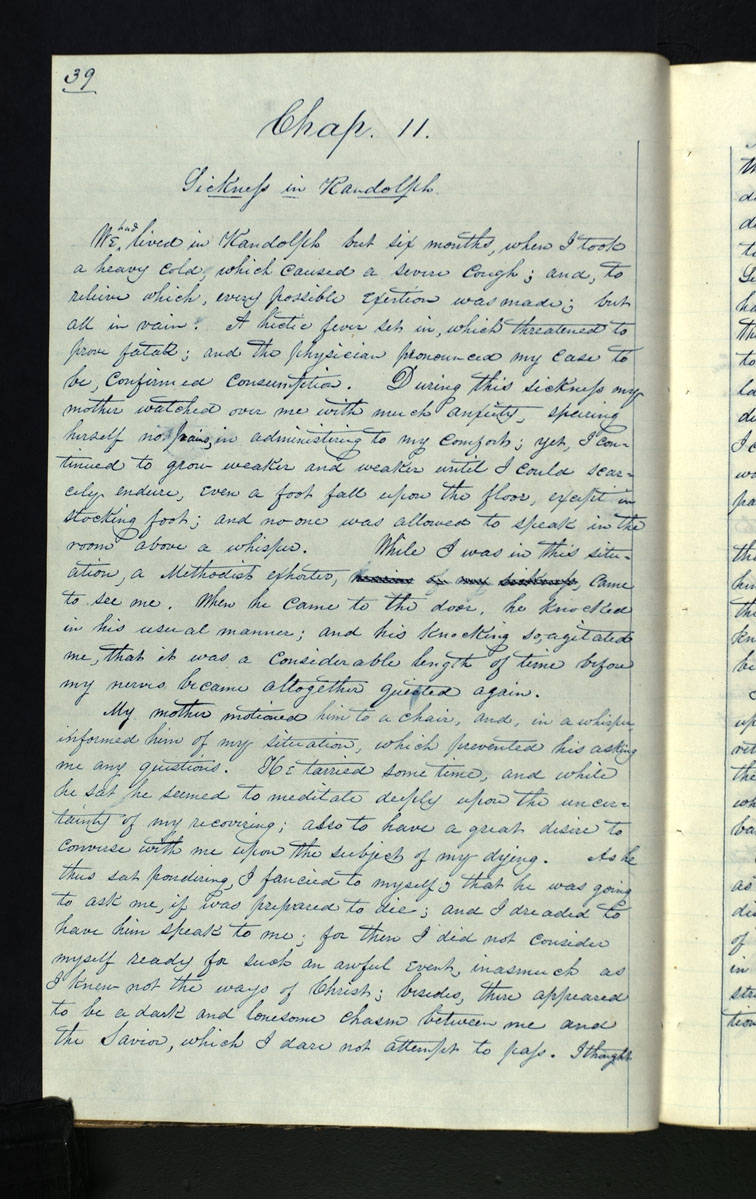 39
Chap. 11.
Sickness in Randolph.
We had lived in Randolph but six months, when I took
a heavy cold, which caused a severe cough; and, to
relieve which, every possible exertion was made; but
all in vain. A hectic fever set in, which threatened to
prove fatal; and the physician pronounced my case to
be, confirmed consumption. During this sickness my
mother watched over me with much anxiety, spearing
herself no pains, in administering to my comfort; yet, I con-
tinued to grow weaker and weaker until I could scar-
cely endure, even a foot fall upon the floor, except in
stocking foot; and no one was allowed to speak in the
room above a whisper. While I was in this situ-
ation, a Methodist exhorter, came
to see me. When he came to the door, he knocked
in his usual manner; and his knocking so, agitated
me, that it was a considerable length of time before
my nerves became altogether quieted again.
My mother motioned him to a chair, and, in a whisper
informed him of my situation, which prevented his asking
me any questions. He tarried some time, and while
he sat he seemed to meditate deeply upon the uncer-
tainty of my recovering; also to have a great desire to
converse with me upon the subject of my dyeng. As he
thus sat pondering, I fancied to myself, that he was going
to ask me, if I was prepared to die; and I dreaded to
have him speak to me; for then I did not consider
myself ready for such an awful event, inasmuch as
I knew not the ways of Christ; besides, there appeared
to be a dark and lonesome chasm between me and
the Savior, which I dare not attempt to pass. I thought